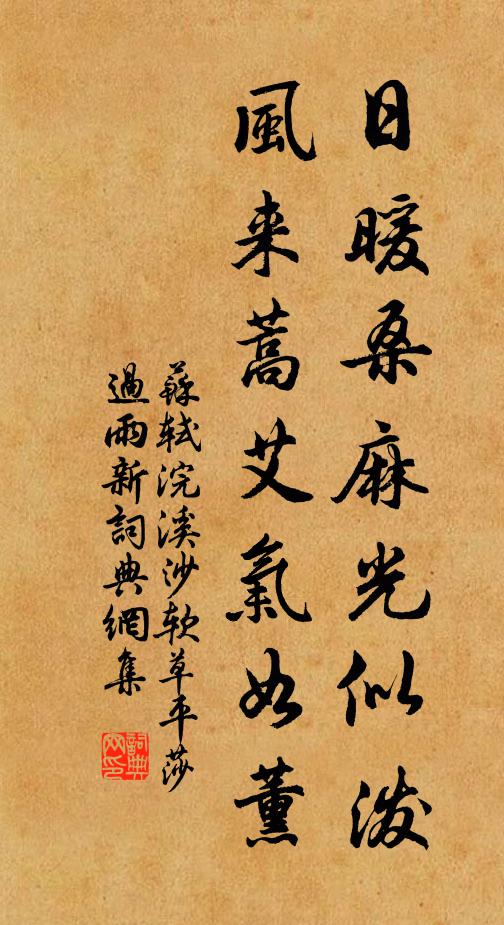 日暖桑麻光似潑
風来蒿艾氣如薰
蘇軾浣溪沙軟草平莎
過雨新詞典網集
詞典網印